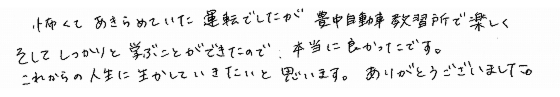 怖くて あきらめていた 運転でしたが 豊中自動車教習所で楽しく
そして しっかりと 学ぶことができたので、本当に良かったこです。
これからの人生に生かしていきたいと思います。ありがとうございました。